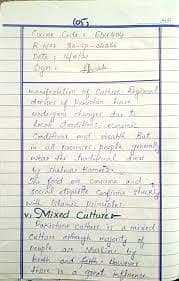 (05)
Course Code: EDU406
Date: 14/8/21
Sign:
manifestation of Culture. Regional
dresses of Pakistan have
undergone changes due to
local conditions economic
Conditions and wealth. But
in all province people generally
wear the traditional dress
by shalwar Kameez.
In food we consume and
social etiquette confirms strictly
with Islamic principles.
v, Mixed Culture
Pakistani culture is a mixed
culture although majority of
people are Muslims by
birth and faith. However
there is a great influence